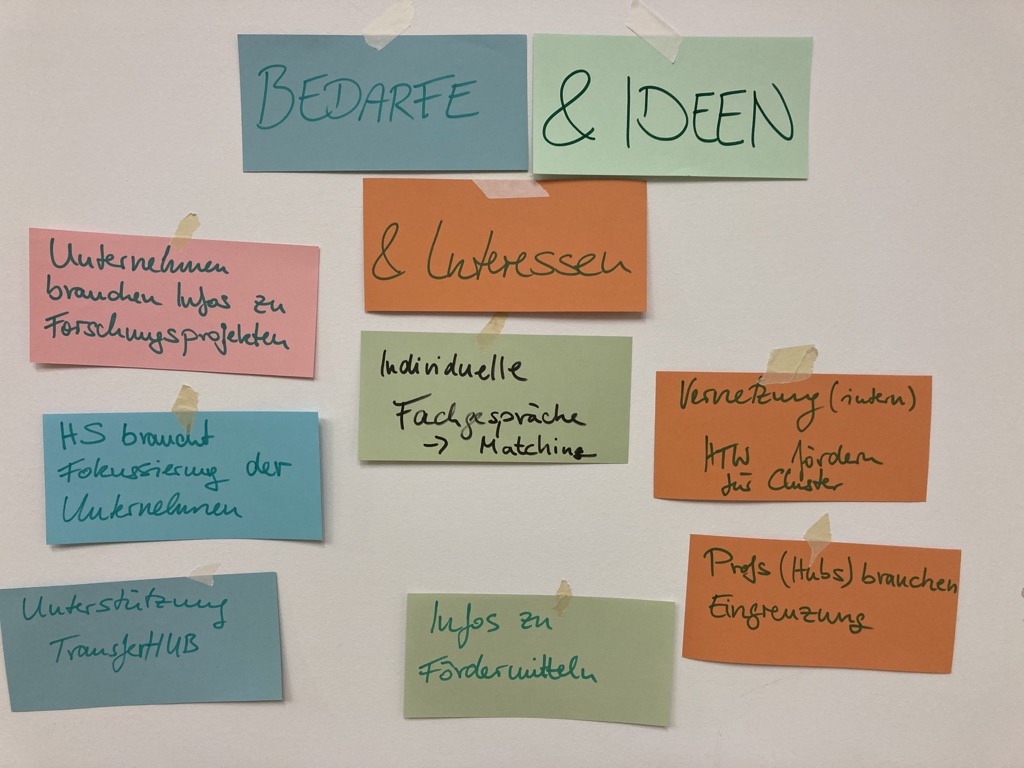 BEDARFE
& IDEEN
& Interessen
Unternehmen
brauchen Infos zu
Forschungsprojekten
Individuelle
Fachgespräche
→ Matching
Vernetzung (intern)
HTW fördern
für Cluster
HS braucht
Fokussierung der
Unternehmen
Profs (Hubs) brauchen
Eingrenzung
Unterstützung
TransferHUB
Infos zu
Fördermitteln